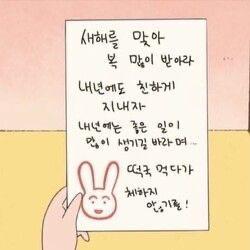 새해를 맞아
복 많이 받아라
내년에도 친하게
지내자
내년에는 좋은 일이
많이 생기길 바라며...
떡국 먹다가
체하지
않기를!